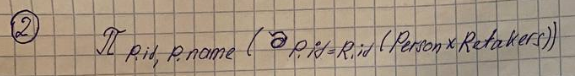 ② π P.id, P.name (σ P.id=R.id (Person x Retakers))